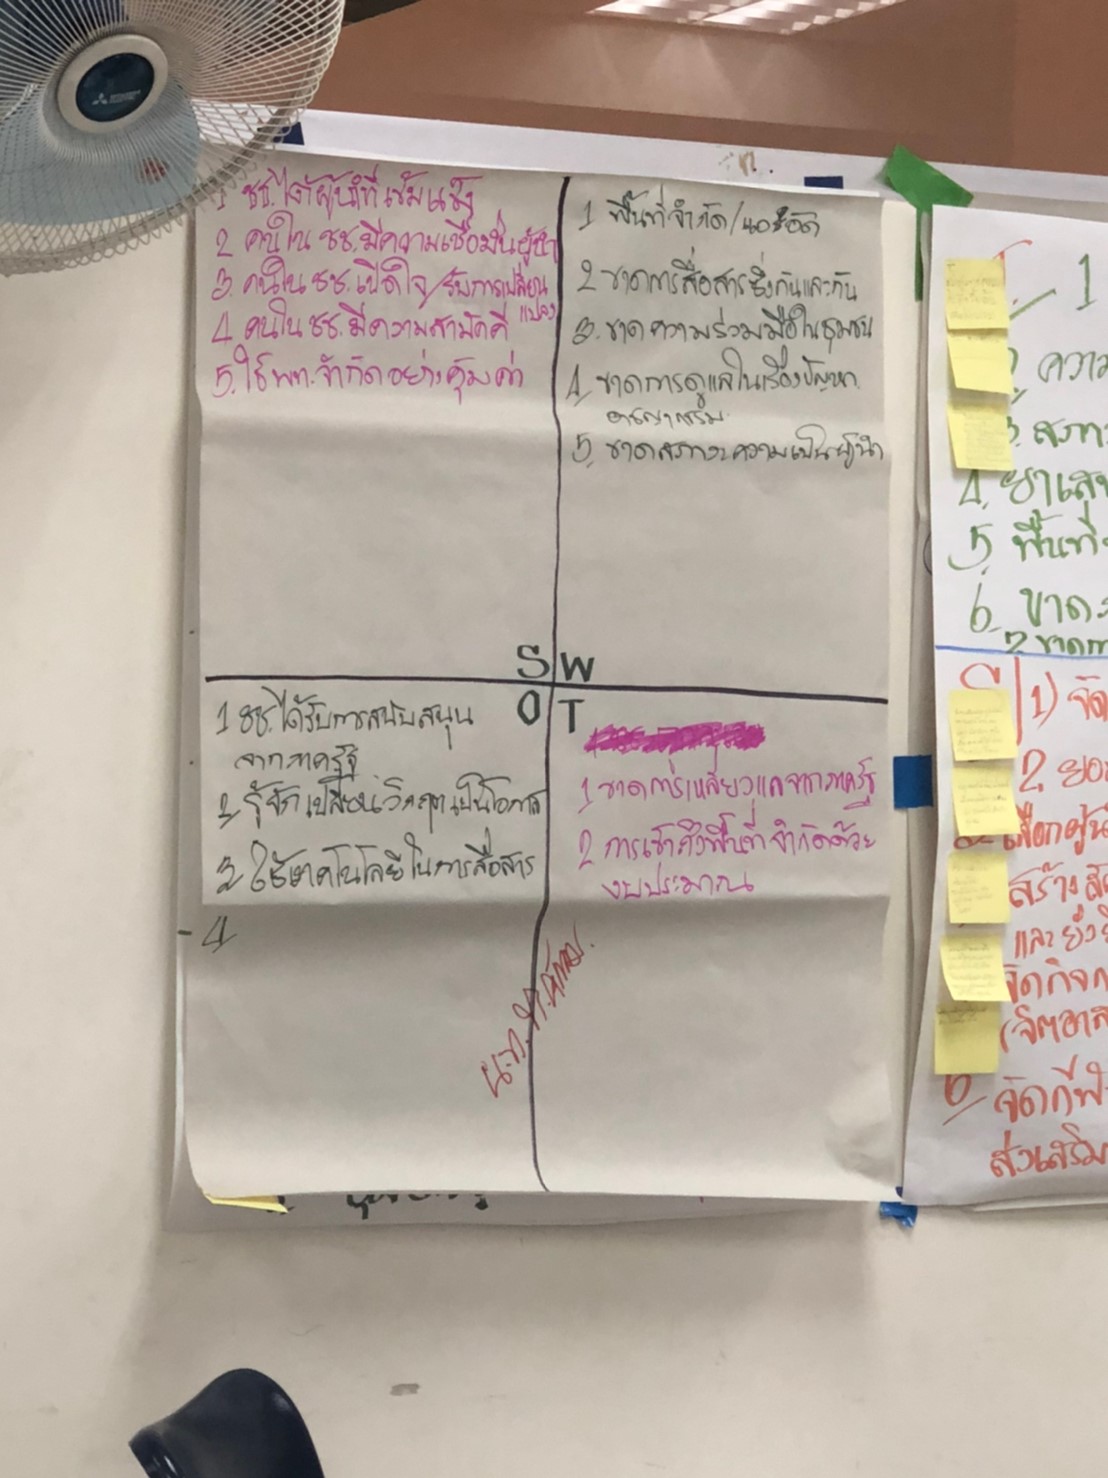 1 ชช.ได้ผู้นำที่เข้มแข็ง
2 คนใน ชช.มีความเชื่อมั่นผู้นำ
3. คนใน ชช.เปิดใจ/รับการเปลี่ยน
แปลง
4 คนใน ชช.มีความสามัคคี
5.ใช้พท.จำกัดอย่างคุ้มค่า
1 พื้นที่จำกัด/แออัด
2 ขาดการสื่อสารซึ่งกันและกัน
3. ขาดความร่วมมือในชุมชน
4. ขาดการดูแลในเรื่องปัญหา
อาชญากรรม
5. ขาดสภาวะความเป็นผู้นำ
S W
O T
1 ชช.ได้รับการสนับสนุน
จากภาครัฐ
2 รู้จักเปลี่ยนวิกฤตเป็นโอกาส
3 ใช้เทคโนโลยีในการสื่อสาร
4
1 ขาดการเหลียวแลจากภาครัฐ
2 การเข้าถึงพื้นที่จำกัดด้วย
งบประมาณ
1
ความ
3. สภา
4. ยาเส
5 พื้นที่
6 ขาด
7 ขาด
1) จัด
2. ยอ
เลือกผู้นำ
สร้าง
และยั่งยื
จัดกิจก
(จิตอาส
6 จัดกีฬา
ส่งเสริม